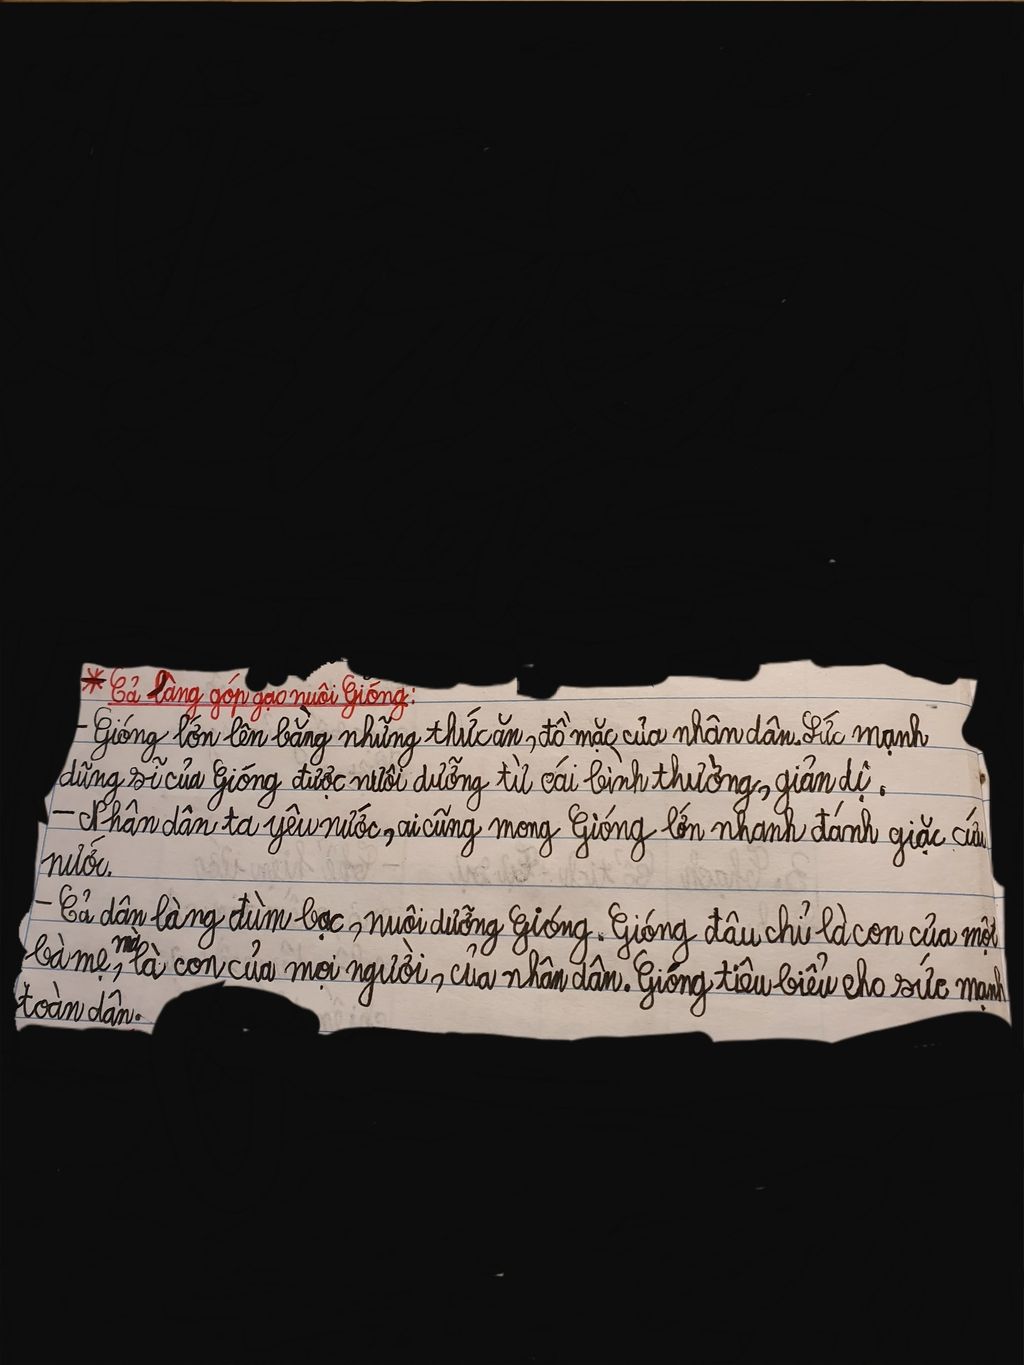 * Cả làng góp gạo nuôi Gióng:
- Gióng lớn lên bằng những thức ăn, đồ mặc của nhân dân. Sức mạnh
dũng sĩ của Gióng được nuôi dưỡng từ cái bình thường, giản dị.
- Nhân dân ta yêu nước, ai cũng mong Gióng lớn nhanh đánh giặc cứu
nước.
- Cả dân làng đùm bọc, nuôi dưỡng Gióng. Gióng đâu chỉ là con của một
bà mẹ, mà là con của mọi người, của nhân dân. Gióng tiêu biểu cho sức mạnh
toàn dân.